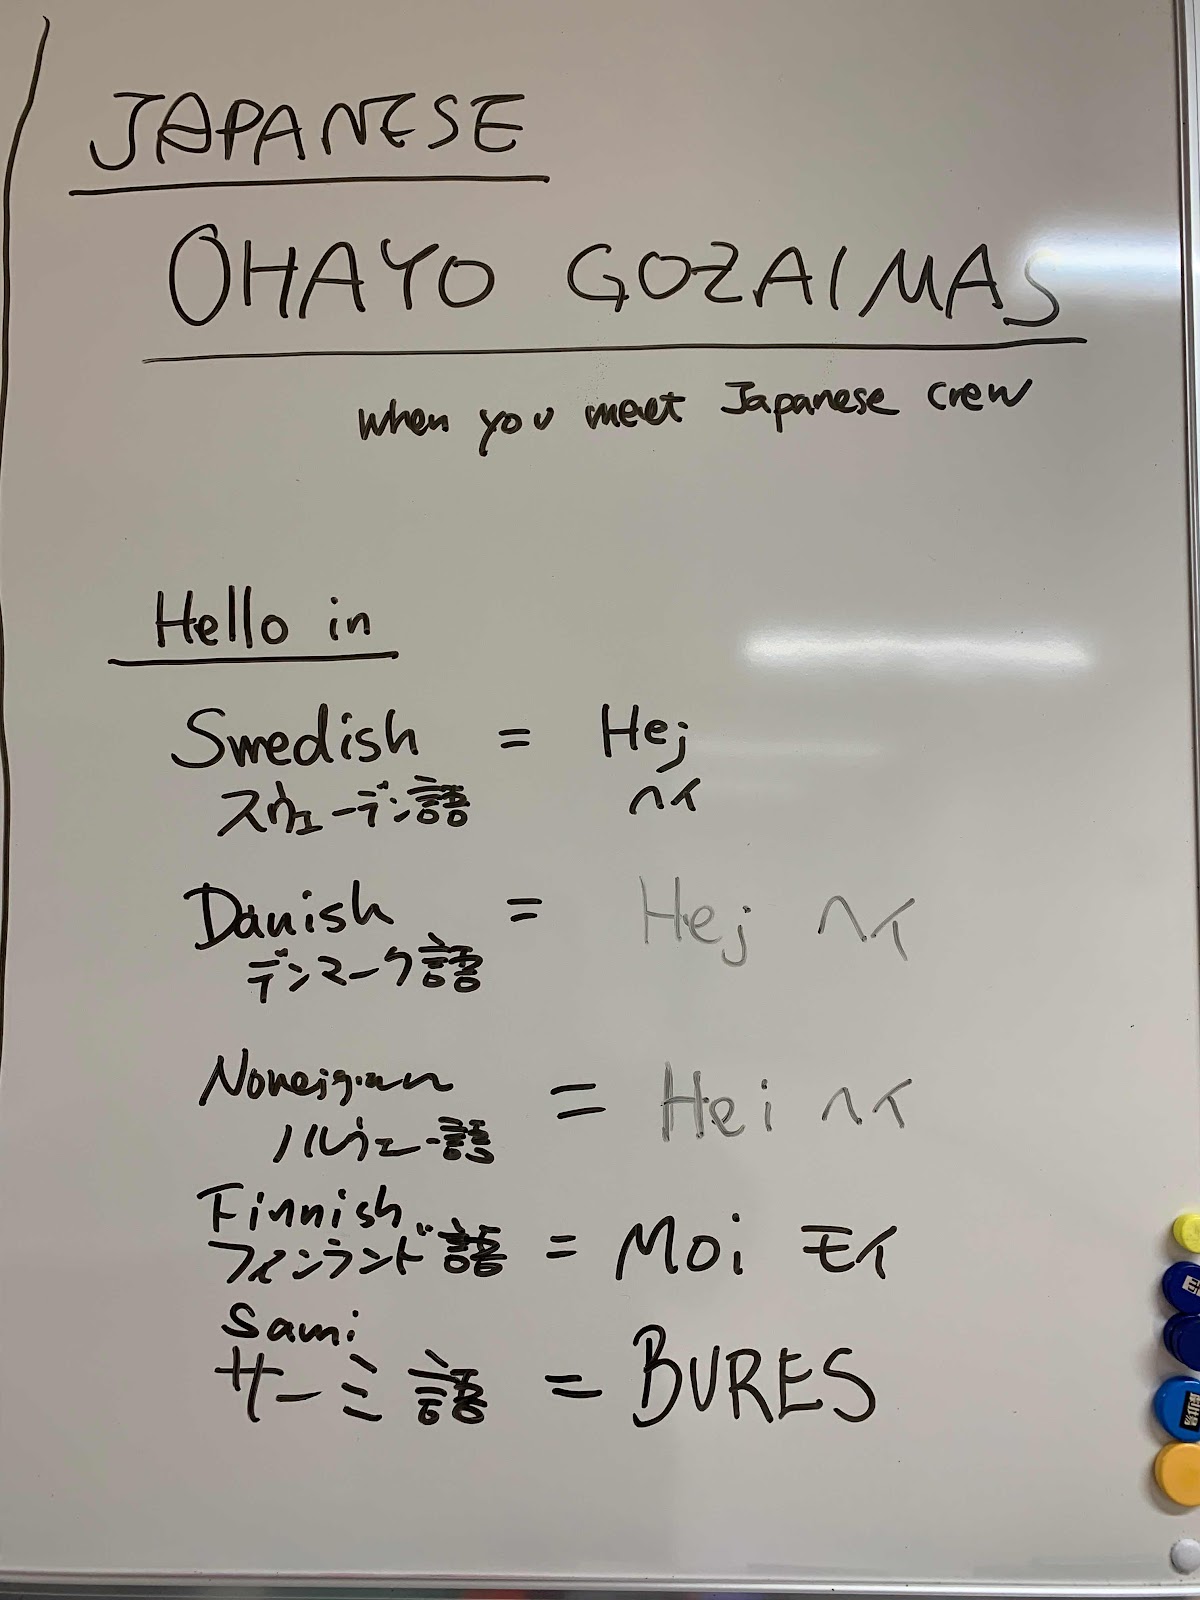 JAPANESE
OHAYO GOZAIMAS
when you meet Japanese crew
Hello in
Swedish = Hej
スウェーデン語 ヘイ
Danish = Hej ヘイ
デンマーク語
Noneigian = Hei ヘイ
ノルウェー語
Finnish
フィンランド語 = Moi モイ
Sami
サーミ語 = BURES